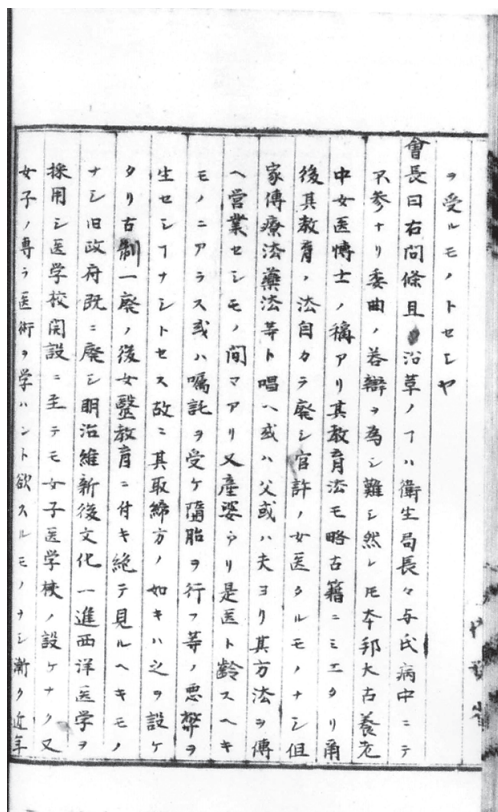 ヲ受ルモノトセシヤ
會長曰右問條且沿革ノヿハ衛生局長々与氏病中ニテ
不参ナリ委曲ノ答辯ヲ為シ難シ然レ𪜈本邦大古養老
中女医博士ノ稱アリ其教育法モ略古籍ニミエタリ爾
後其教育ノ法自カラ廃シ官許ノ女医タルモノナシ但
家傳療法藥法等ト唱ヘ或ハ父或ハ夫ヨリ其方法ヲ傳
ヘ営業セシモノ間マアリ又産婆アリ是医ト齢スヘキ
モノニアラス或ハ嘱託ヲ受ケ墮胎ヲ行フ等ノ悪弊ヲ
生セシヿナシトセス故ニ其取締方ノ如キハ之ヲ設ケ
タリ古制一廃ノ後女醫教育ニ付キ絶テ見ルヘキモノ
ナシ旧政府既ニ廃シ明治維新後文化一進西洋医学ヲ
採用シ医学校開設ニ至テモ女子医学校ノ設ケナク又
女子ノ専ラ医術ヲ学ハント欲スルモノナシ漸ク近年